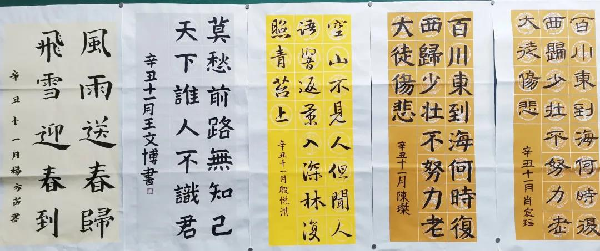 風雨送春歸
飛雪迎春到
辛丑十一月楊
莫愁前路無知己
天下誰人不識君
辛丑十一月王文博書
空山不見人但聞人
語響返景入深林復
照青苔上
辛丑十一月殷悦淇
百川東到海何時復
西歸少壯不努力老
大徒傷悲
辛丑十一月陳燦
百川東到海何時復
西歸少壯不努力老
大徒傷悲
辛丑十一月肖